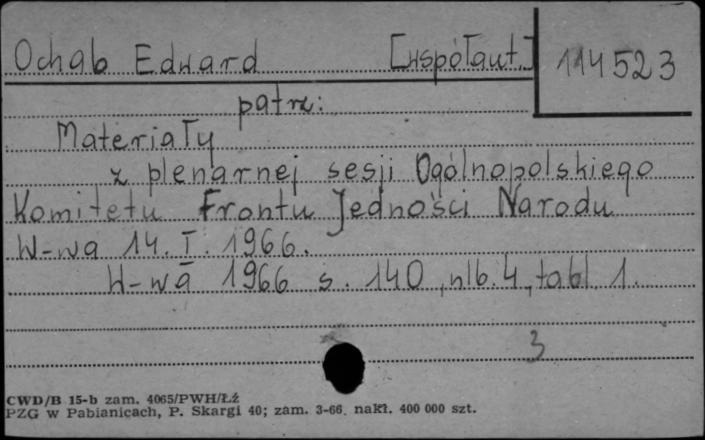 Ochab Edward [współaut.] 114523
patrz:
Materiały
z plenarnej sesji Ogólnopolskiego
Komitetu Frontu Jedności Narodu
W-wa 14. I. 1966.
W-wa 1966 s. 140, nlb. 4, tabl. 1.
3
CWD/B 15-b zam. 4065/PWH/Łź
PZG w Pabianicach, P. Skargi 40; zam. 3-66. nakł. 400 000 szt.